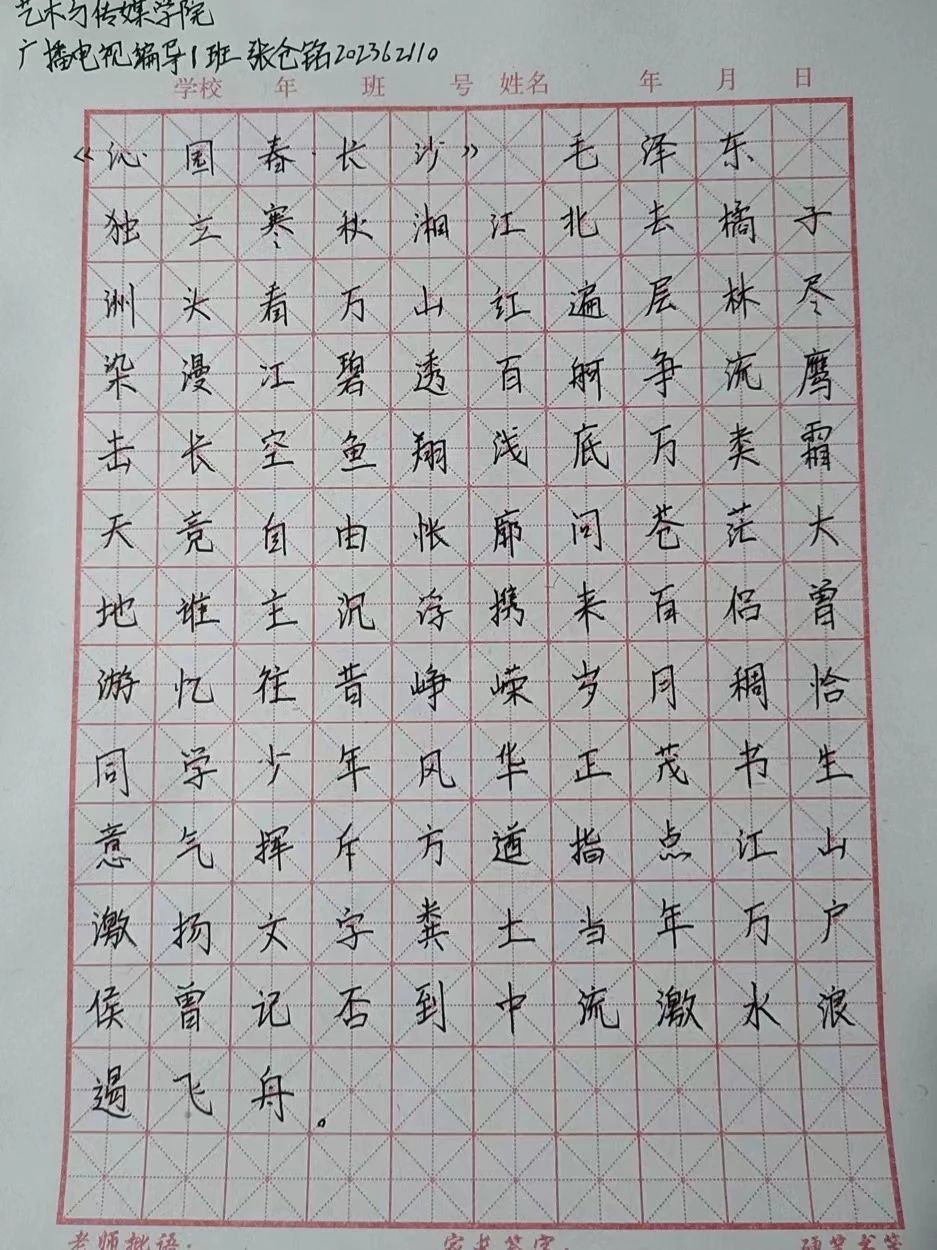 艺术与传媒学院
广播电视编导1班 张仓铭202362110
学校 年 班 号 姓名 年 月 日
《沁园春·长沙》 毛泽东
独立寒秋湘江北去橘子
洲头看万山红遍层林尽
染漫江碧透百舸争流鹰
击长空鱼翔浅底万类霜
天竞自由怅廓问苍茫大
地谁主沉浮携来百侣曾
游忆往昔峥嵘岁月稠恰
同学少年风华正茂书生
意气挥斥方遒指点江山
激扬文字粪土当年万户
侯曾记否到中流激水浪
遏飞舟。
老师批语: 家长签字: